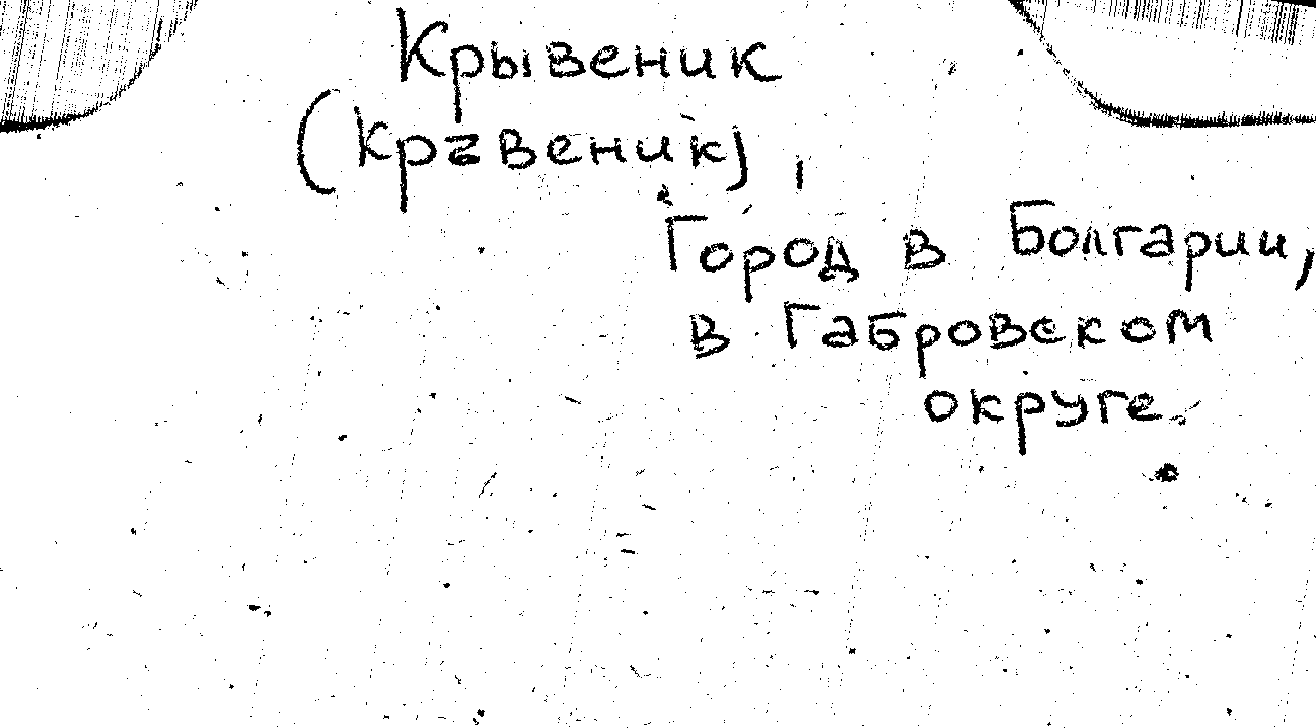 Крывеник
(Кръвеник),
Город в Болгарии,
в Габровском
округе.